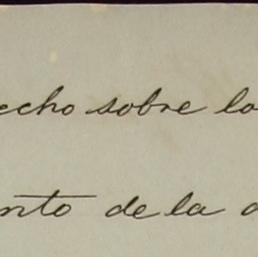 echo sobre lo
nto de la